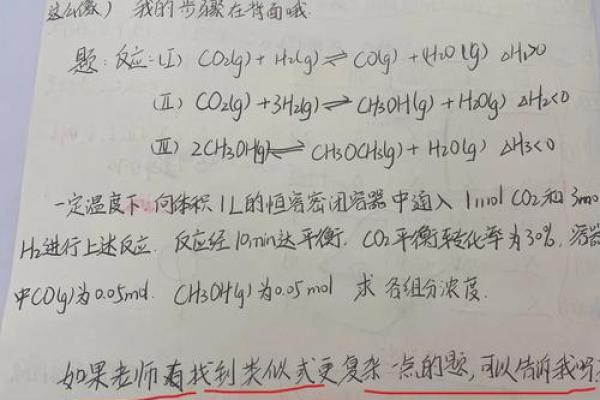 这么做) 我的步骤在背面哦.
题: 反应: (I) CO2(g) + H2(g) ⇌ CO(g) + H2O(g) ΔH1>0
(II) CO2(g) + 3H2(g) ⇌ CH3OH(g) + H2O(g) ΔH2<0
(III) 2CH3OH(g) ⇌ CH3OCH3(g) + H2O(g) ΔH3<0
一定温度下, 向体积1L的恒容密闭容器中通入1mol CO2和3mo
H2进行上述反应. 反应经10min达平衡. CO2平衡转化率为30%, 容器
中CO(g)为0.05mol. CH3OH(g)为0.05mol 求各组分浓度.
如果老师有找到类似或更复杂一点的题, 可以告诉我吗